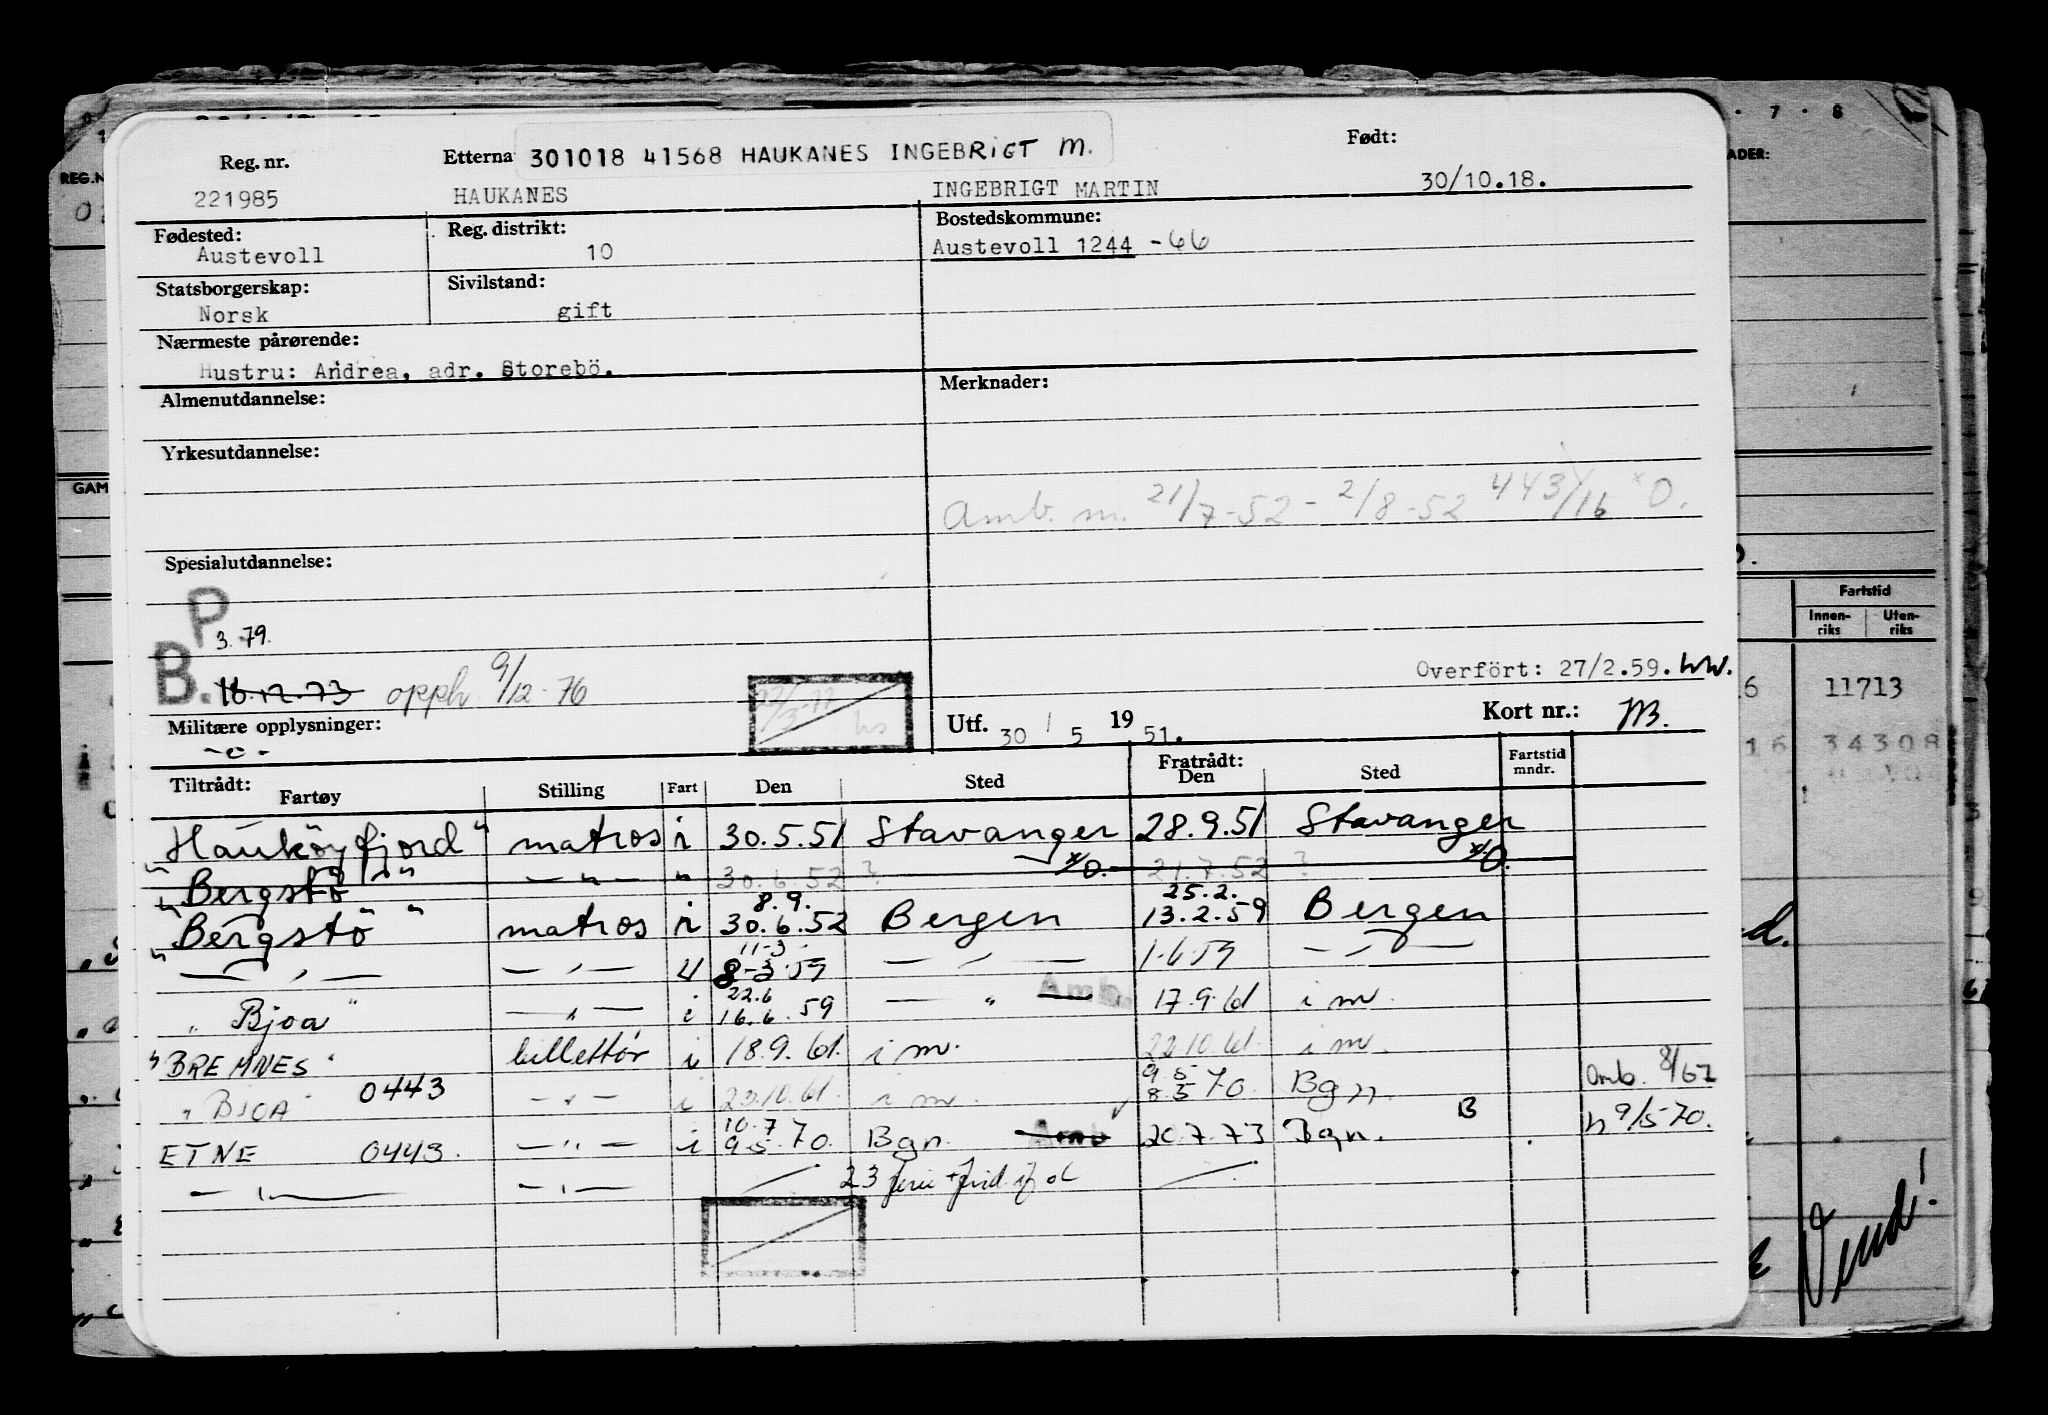 Reg. nr. Etterna 301018 41568 HAUKANES INGEBRIGT M. Født:
221985 HAUKANES INGEBRIGT MARTIN 30/10.18.
Fødested: Reg. distrikt: Bostedskommune:
Austevoll 10 Austevoll 1244 -66
Statsborgerskap: Sivilstand:
Norsk gift
Nærmeste pårørende:
Hustru: Andrea, adr. Storebö.
Almenutdannelse: Merknader:
Yrkesutdannelse:
Amb. m. 21/7-52 - 2/8-52 443/16 O.
Spesialutdannelse:
P 3.79.
B. 18.12.73 opph 9/12-76
Overfört: 27/2.59.
Militære opplysninger: Utf. 30 / 5 1951. Kort nr.:
-o-
Tiltrådt: Fratrådt:
Fartøy Stilling Fart Den Sted Den Sted Fartstid mndr.
"Hauköyfjord" matros i 30.5.51 Stavanger 28.9.51 Stavanger
"Bergstö" — " — " 30.6.52 ? O. 21.7.52 ? O.
8.9. 25.2.
"Bergstö" matros i 30.6.52 Bergen 13.2.59 Bergen
11-3
— " — — " — 8-3-59 — " — 1-6-59 — " —
22.6
"Bjoa" — " — i 16.6.59 — " — Amb. 17.9.61 i m.
"BREMNES" billettör i 18.9.61. i m. 22.10.61. i m.
9.5
"BJOA" 0443 — " — i 23.10.61. i m. 8.5 70. Bgn. Amb. 8/67
10.7
ETNE 0443. — " — i 9.5 70. Bgn. Amb 20.7.73 Bgn. B n 9/5-70.
— " — — " — 23
REG.N
GAM
7 · 8
ADER:
Fartstid
Innenriks Utenriks
11713
16 34308
d.
Vend!